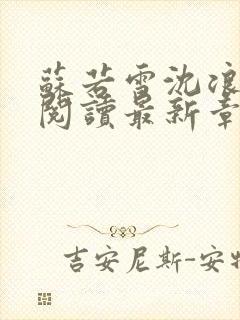 蘇若雪沈浪
閱讀最新章
吉安尼斯-安特